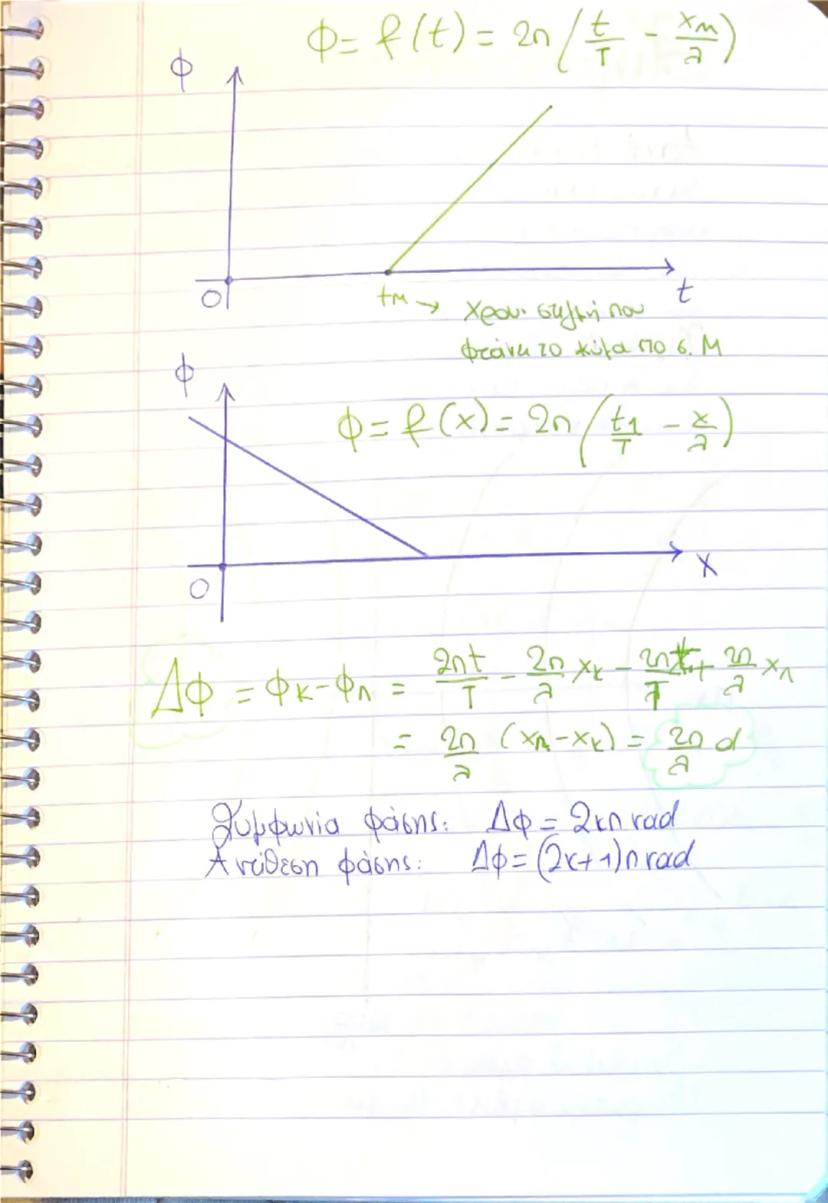 Φ = f(t) = 2π(t/T - x_M/λ)
Φ
O
t_M → χρον. στιγμή που
t
φτάνει το κύμα στο σ. M
Φ
Φ = f(x) = 2π(t1/T - x/λ)
O
x
ΔΦ = Φ_K - Φ_Λ = 2πt/T - 2π/λ x_K - 2πt/T + 2π/λ x_Λ
= 2π/λ (x_Λ - x_K) = 2π/λ d
Συμφωνία φάσης: ΔΦ = 2κπ rad
Αντίθεση φάσης: ΔΦ = (2κ+1)π rad